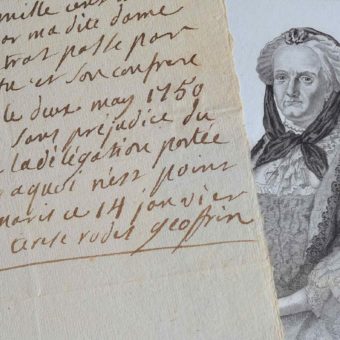 mille cent
par ma dite dame
trat passé par
tu et son confrere
le deux may 1750
sans prejudice du
la délégation portée
aquoi n'est point
paris ce 14 janvier
rodet geoffrin